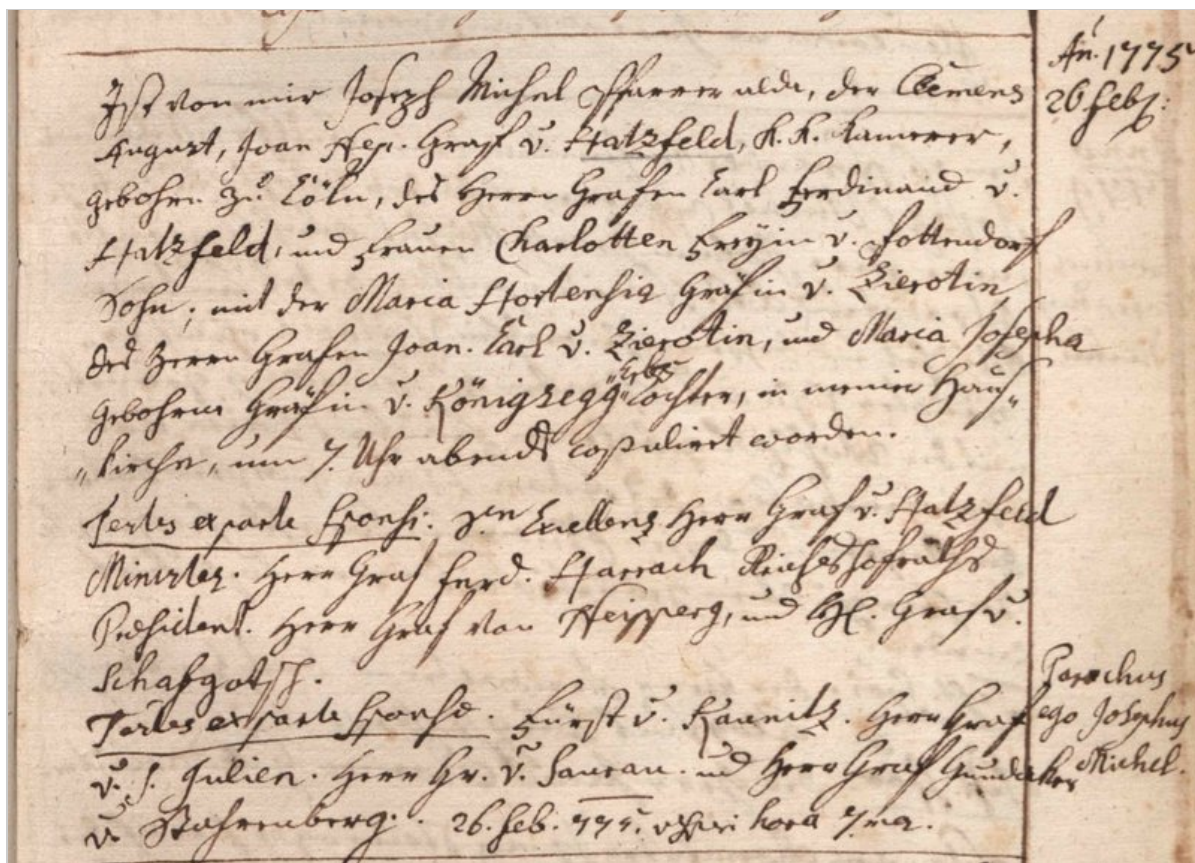 An. 1775
26 feb:
Ist von mir Joseph Michel Pfarrer alda, der Clemens
August, Joan Nep. Graf v. Hatzfeld, K. K. Kamerer,
gebohrn zu Cöln, des Herrn Grafen Carl Ferdinand v.
Hatzfeld, und Frauen Charlotten Freyin v. Bottendorf
Sohn; mit der Maria Hortensia Gräfin v. Zierotin,
des Herrn Grafen Joan. Carl v. Zierotin, und Maria Josepha
gebohrne Gräfin v. Königsegg Tochter, in meiner Haus„
„kirche, um 7. Uhr abends copuliret worden.
Testes ex parte Sponsi. Excellenz Herr Graf v. Hatzfeld
Minister. Herr Graf Ferd. Harrach Reichshofraths
President. Herr Graf von Neipperg, und H. Graf v.
Schafgotsch.
Testes ex parte Sponsæ. Fürst v. Kaunitz. Herr Graf
v. S. Julien. Herr Gr. v. Saurau. und Herr Graf Gundaker
v. Stahrenberg. 26. feb. 775. hora 7ma.
Parochus
ego Josephus
Michel.